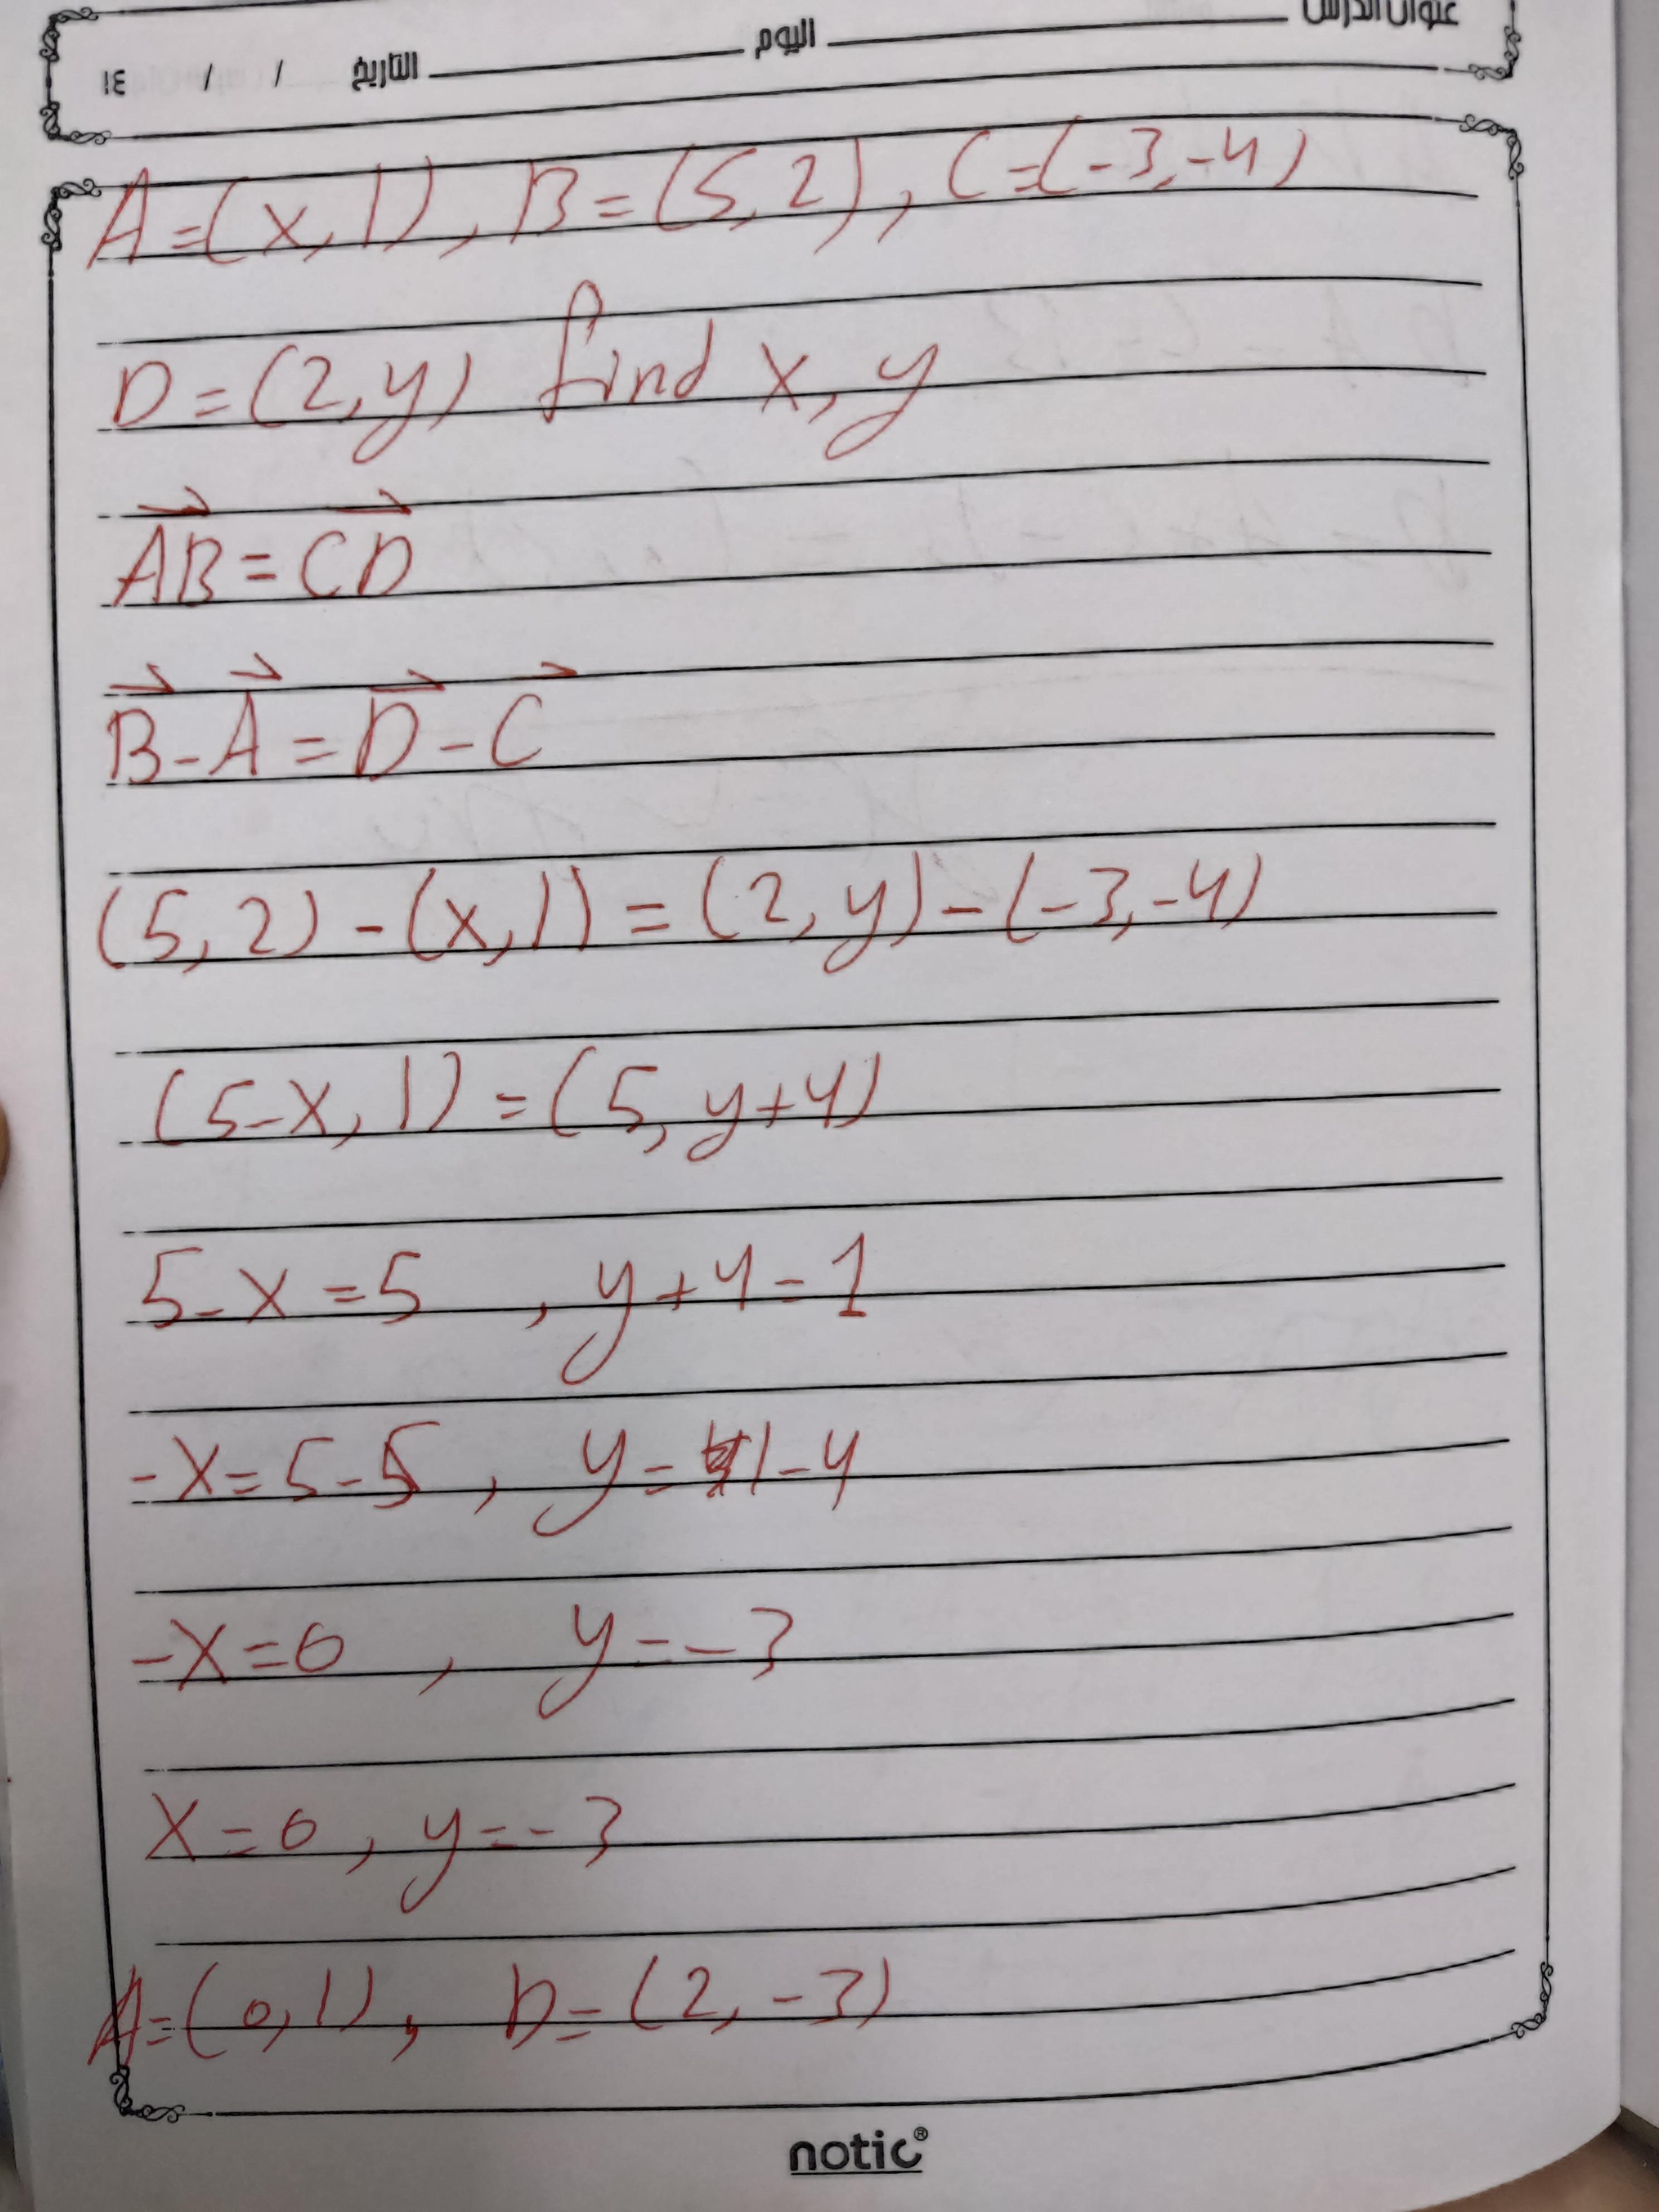 عنوان الدرس اليوم التاريخ / / ١٤
A=(x,1), B=(5,2), C=(-3,-4)
D=(2,y) find x,y
A⃗B⃗=C⃗D⃗
B⃗-A⃗=D⃗-C⃗
(5,2)-(x,1)=(2,y)-(-3,-4)
(5-x,1)=(5,y+4)
5-x=5 , y+4=1
-x=5-5 , y=1-4
-x=0 , y=-3
x=0, y=-3
A=(0,1), D=(2,-3)
notic®